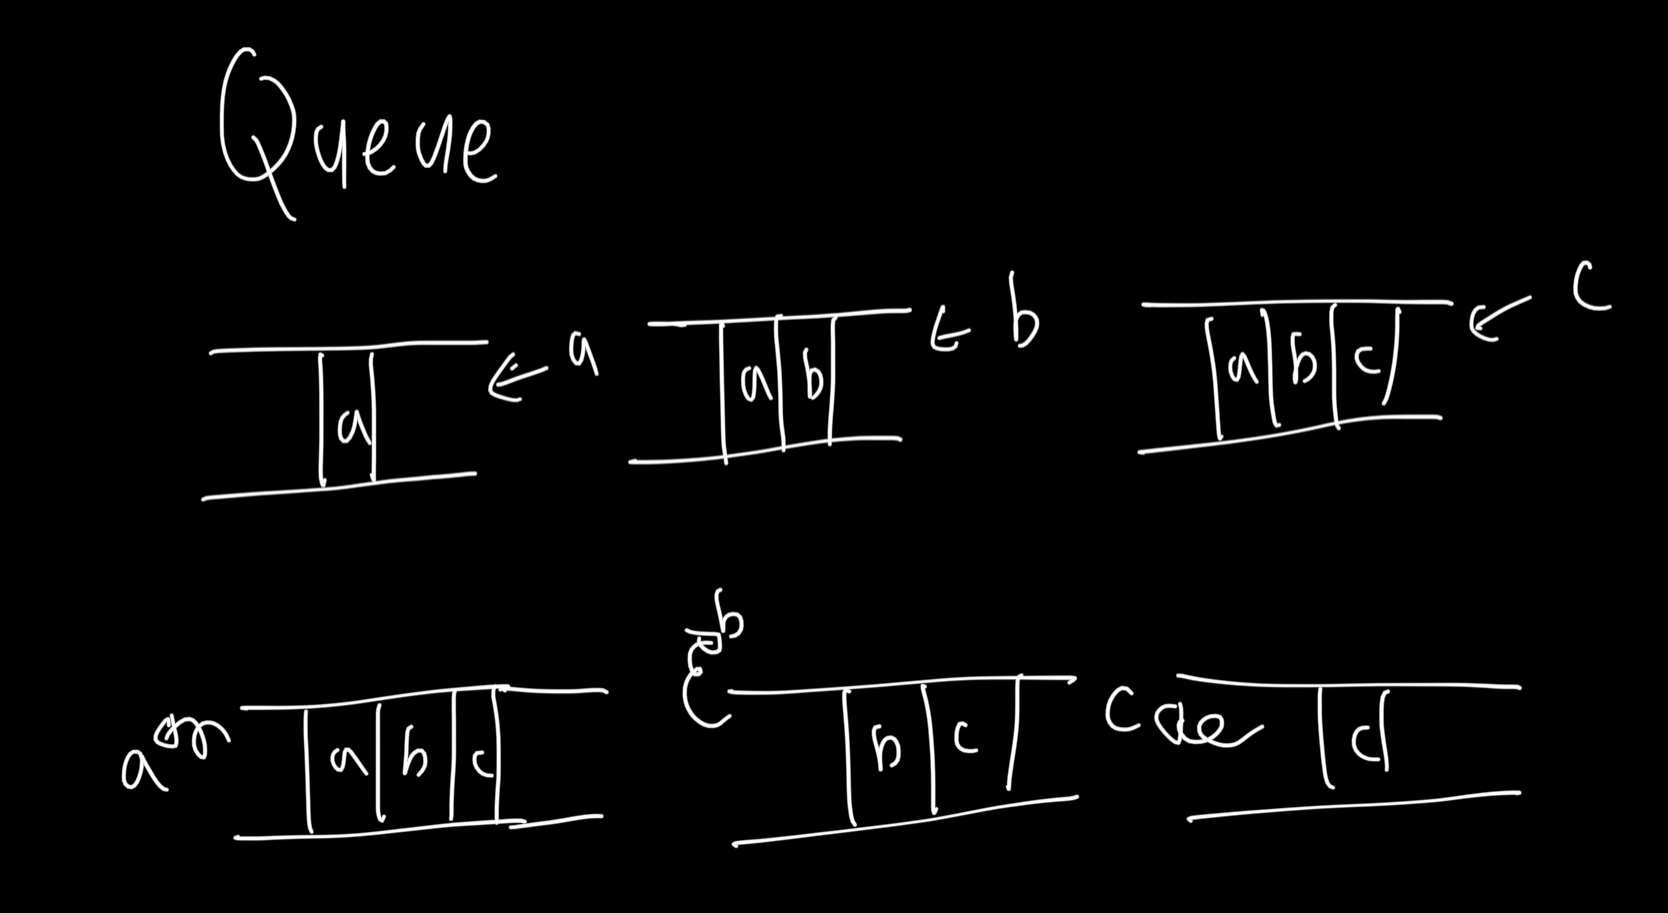 Queue
a a b a b c a b c
b
a a b c b c c c